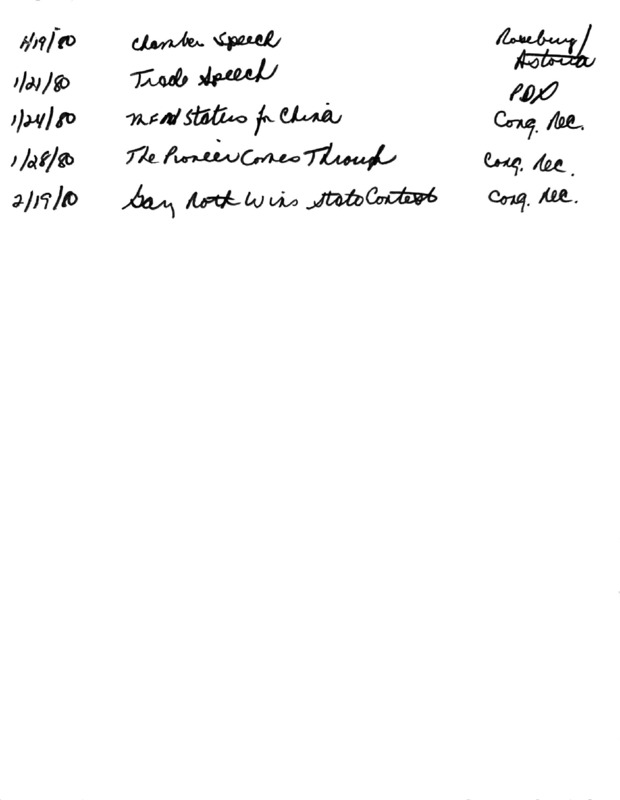 1/19/80 Chamber Speech Roseburg/
Astoria
1/21/80 Trade Speech PDX
1/24/80 MFN Status for China Cong. Rec.
1/28/80 The Pioneer Comes Through Cong. Rec.
2/19/80 Gary Roth Wins State Contest Cong. Rec.